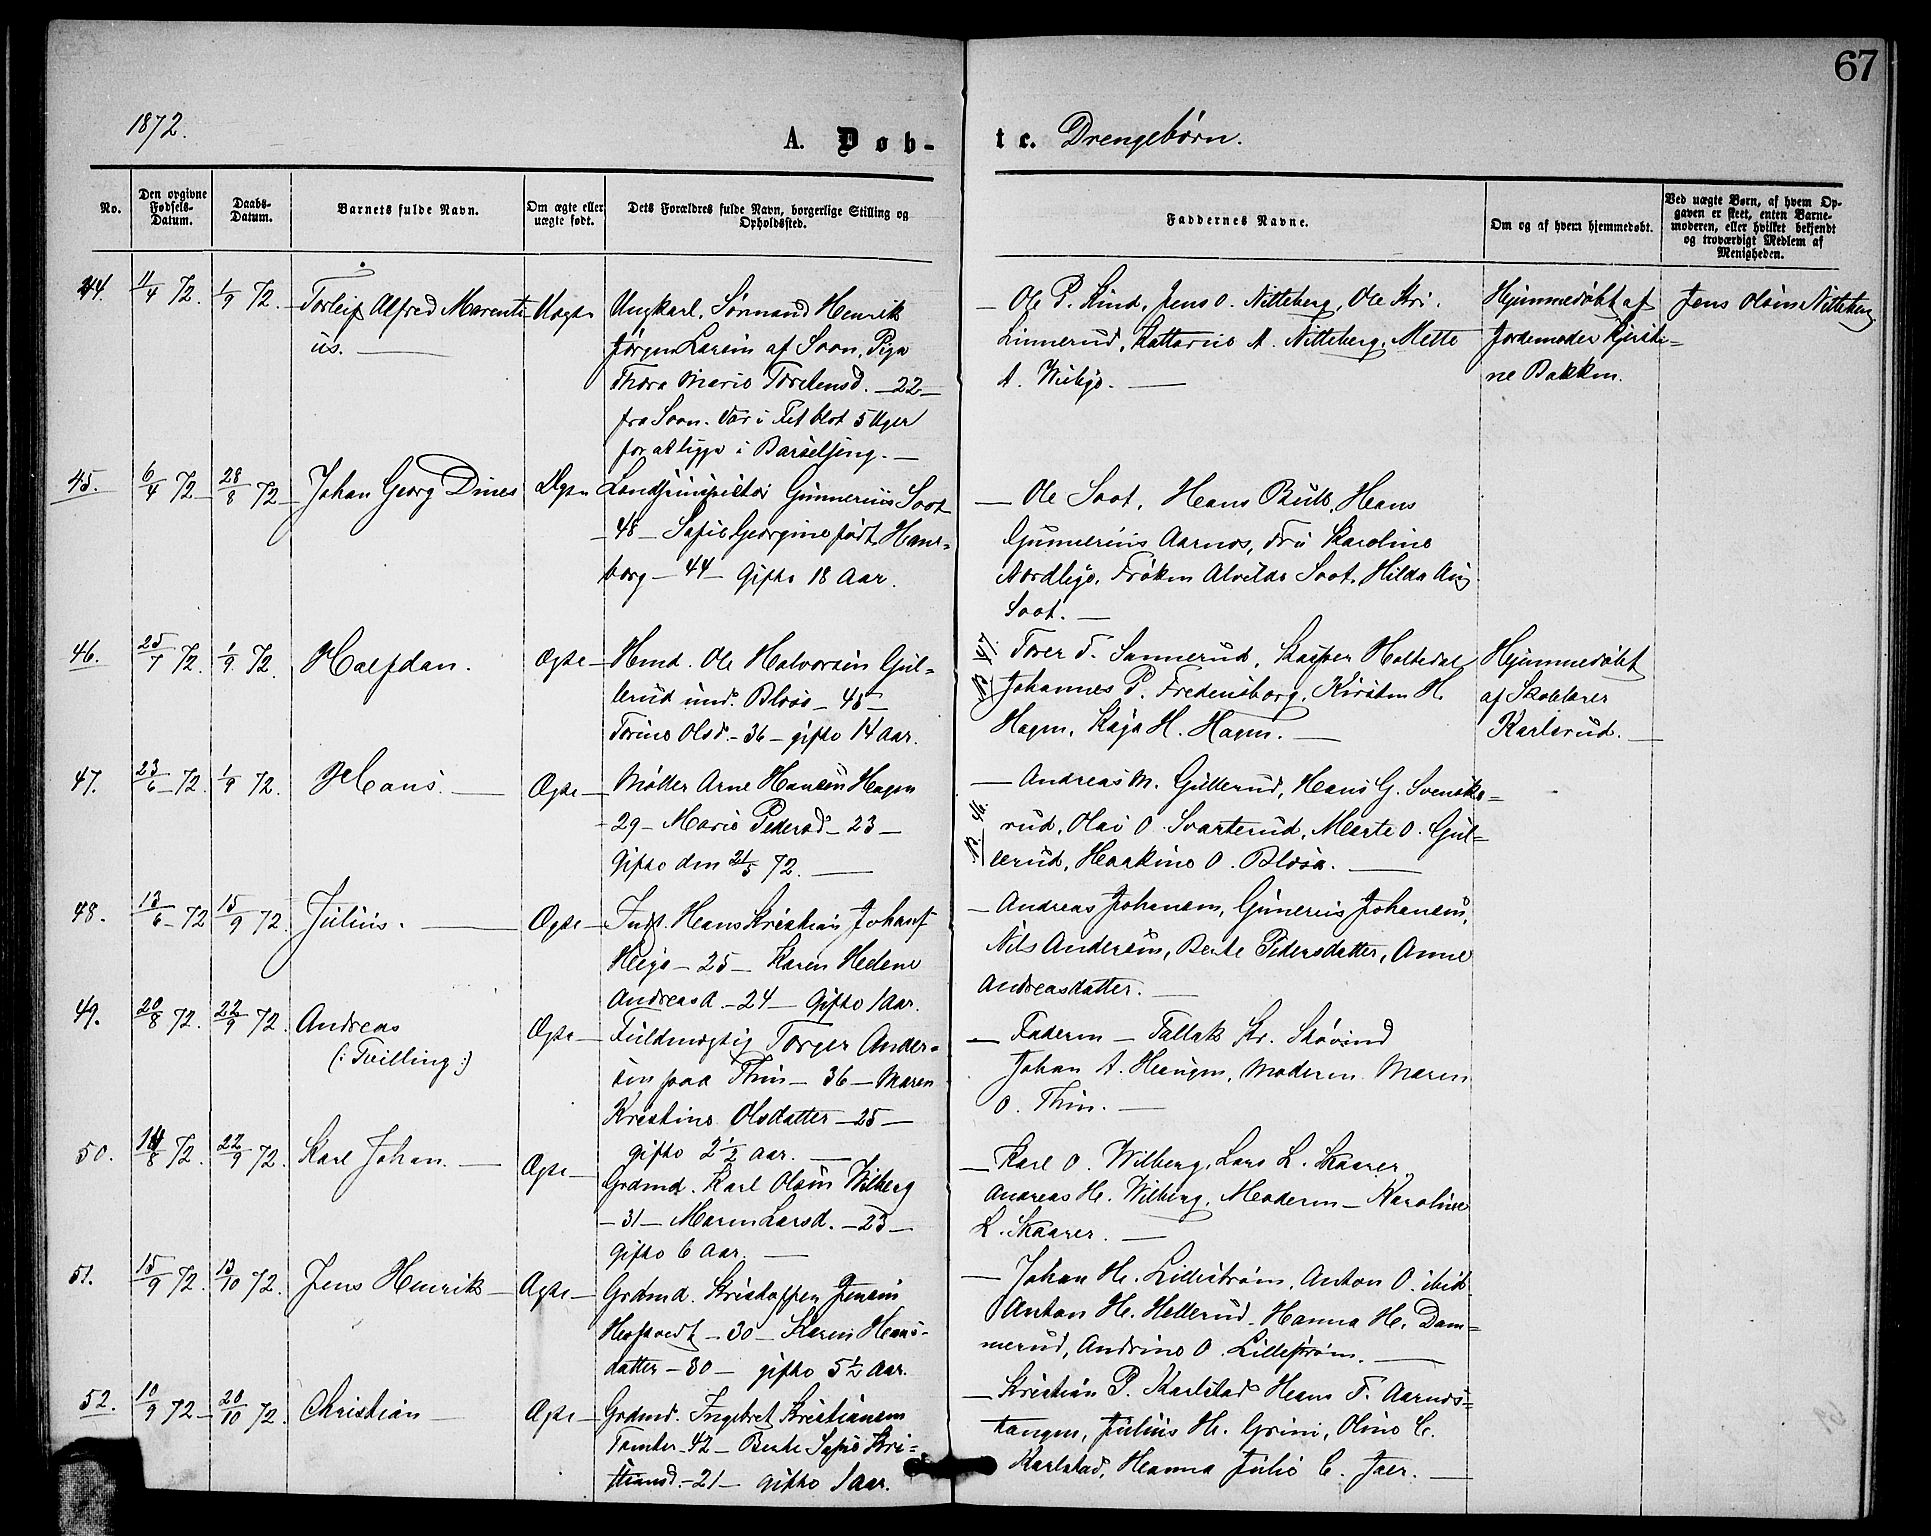 67
1872.
A. Døb-
te. Drengebørn.
No.
Den opgivne Fødsels-Datum.
Daabs-Datum.
Barnets fulde Navn.
Om ægte eller uægte født.
Dets Forældres fulde Navn, borgerlige Stilling og Opholdssted.
Faddernes Navne.
Om og af hvem hjemmedøbt.
Ved uægte Børn, af hvem Opgaven er skeet, enten Barnemoderen, eller hvilket bekjendt og troværdigt Medlem af Menigheden.
44. 11/4 72. 1/9 72. Torleif Alfred Marenti-
us. —
Uægte
Ungkarl, Sømand Henrik
Jørgen Larsen af Soon, Pige
Thora Marie Torstensd. — 22 —
fra Soon. Var i Fet blot 5 Uger
for at ligge i Barselseng. —
— Ole P. Kind, Jens O. Nitteberg, Ole Kri.
Linnerud, Kattarine A. Nitteberg, Mette
A. Wiibye. —
Hjemmedøbt af
Jordemoder Kjersti-
ne Bakken.
Jens Olsen Nitteberg
45. 6/4 72 28/8 72 Johan Georg Dines
Ægte
Landinspektør Gunnerius Soot
— 48 — Sofie Georgine født Hans-
borg — 44 — Gifte 18 Aar.
— Ole Soot, Hans Bull, Hans
Gunnerius Aarnes, Fru Karoline
Nordlige, Frøken Alvilde Soot, Hilda Aug
Soot. —
46. 25/7 72. 1/9 72. Halfdan.
Ægte —
Hmd. Ole Halvorsen Gul-
lerud und. Blæs — 45 —
Torine Olsd. — 36 — gifte 14 Aar.
Torer T. Sannerud, Kasper Holtedal
Johannes P. Fredensborg, Kirsten H.
Hagen, Kaja H. Hagen. —
Hjemmedøbt
af Skolelærer
Karlsrud. —
47. 23/6 72. 1/9 72. Hans. —
Ægte —
Møller Arne Hansen Hagen
— 29 — Marie Pedersd — 23 —
Gifte den 21/5 72. —
— Andreas M. Gullerud, Hans G. Svenske-
rud, Olai O. Svarterud, Marte O. Gul-
lerud, Haakine O. Blæsa. —
48. 13/6 72 15/9 72. Julius. —
Ægte —
Inds. Hans Kristian Johans
Heie — 25 — Karen Helene
Andreasd. — 24 — Gifte 1 Aar.
— Andreas Johansen, Gunerius Johansen,
Nils Andersen, Berte Pedersdatter, Anne
Andreasdatter. —
49. 20/8 72. 22/9 72. Andreas
(: Tvilling :)
Ægte —
Fuldmægtig Torger Ander-
sen paa Thien — 36 — Maren
Kristine Olsdatter — 25 —
gifte 2½ Aar. —
— Faderen — Tallak Kr. Skøvind
Johan A. Haugen, Moderen Maren
O. Thien. —
50. 14/8 72. 22/9 72. Karl Johan. —
Ægte —
Grdmd. Karl Olsen Wilberg
— 31 — Maren Larsd. — 23 —
gifte 6 Aar. —
— Karl O. Wilberg, Lars L. Skaarer,
Andreas H. Wilberg, Moderen — Karoline
L. Skaarer. —
51. 15/9 72. 13/10 72. Jens Henrik —
Ægte —
Grdmd. Kristoffer Jensen
— 30 — Karen Hans-
datter — 30 — gifte 5½ Aar.
— Johan H. Lillestrøm, Anton O. ibid.
Anton H. Hellerud, Hanna H. Dam-
merud, Andrine O. Lillestrøm. —
52. 10/9 72 — 20/10 72. Christian —
Ægte —
Grdmd. Ingebret Kristiansen
Tomter — 42 — Berte Sofie Kri-
stiansd. — 21 — gifte 1 Aar.
— Kristian P. Karlstad, Hans F. Aarnes-
tangen, Julius H. Grini, Oline C.
Karlstad, Hanna Julie C. Jaer. —